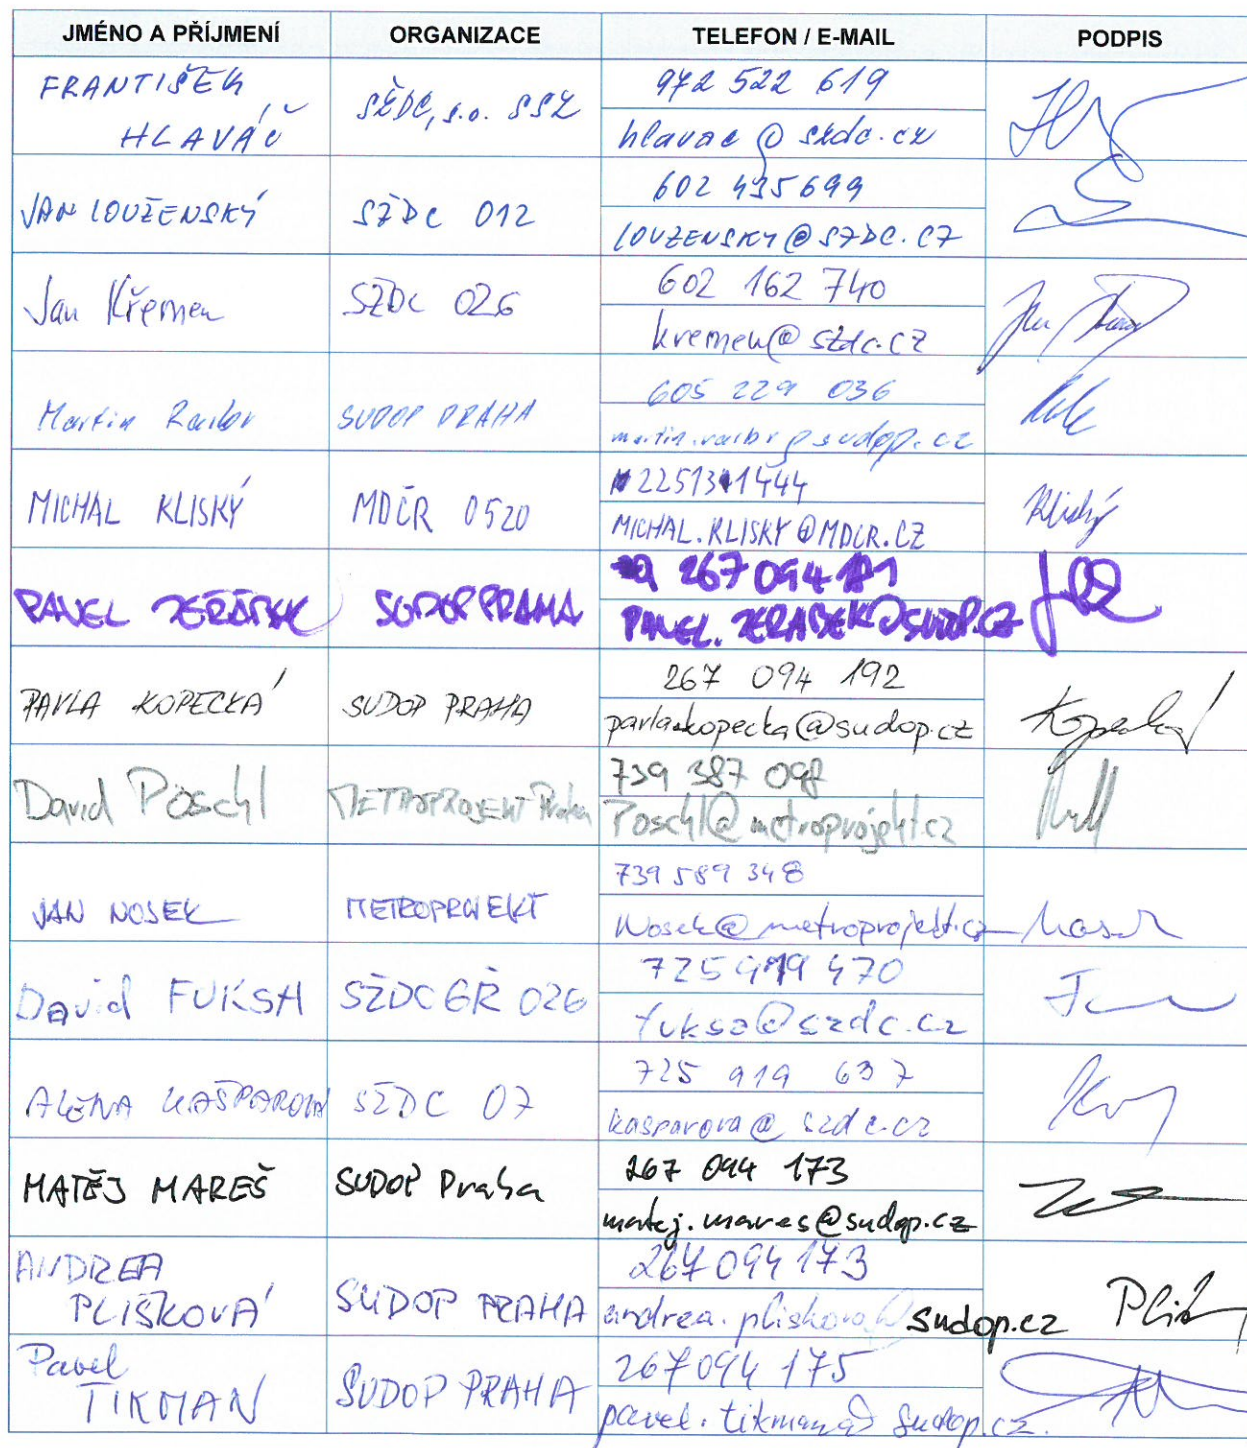 JMÉNO A PŘÍJMENÍ ORGANIZACE TELEFON / E-MAIL PODPIS
FRANTIŠEK HLAVÁČ SŽDC, s.o. SSZ 972 522 619
hlavac@szdc.cz
JAN LOUŽENSKÝ SŽDC 012 602 435699
LOUZENSKY@SZDC.CZ
Jan Křemen SŽDC 026 602 162 740
kremen@szdc.cz
Martin Raibr SUDOP PRAHA 605 229 036
martin.raibr@sudop.cz
MICHAL KLISKÝ MDČR 0520 225131444
MICHAL.KLISKY@MDCR.CZ Kliský
PAVEL SUDOP PRAHA 267 094
PAVEL.
PAVLA KOPECKÁ SUDOP PRAHA 267 094 192
pavla.kopecka@sudop.cz Kopecká
David Pöschl METROPROJEKT Praha 739 387 098
Poschl@metroprojekt.cz
JAN NOSEK METROPROJEKT 739 589 348
Nosek@metroprojekt.cz Nosek
David FUKSA SŽDC GŘ 026 725 919 470
fuksa@szdc.cz
ALENA KAŠPAROVÁ SŽDC 07 725 919 637
kasparova@szdc.cz
MATĚJ MAREŠ SUDOP Praha 267 094 173
matej.mares@sudop.cz
ANDREA PLIŠKOVÁ SUDOP PRAHA 267 094 173
andrea.pliskova@sudop.cz
Pavel TIKMAN SUDOP PRAHA 267094 175
pavel.tikman@sudop.cz.